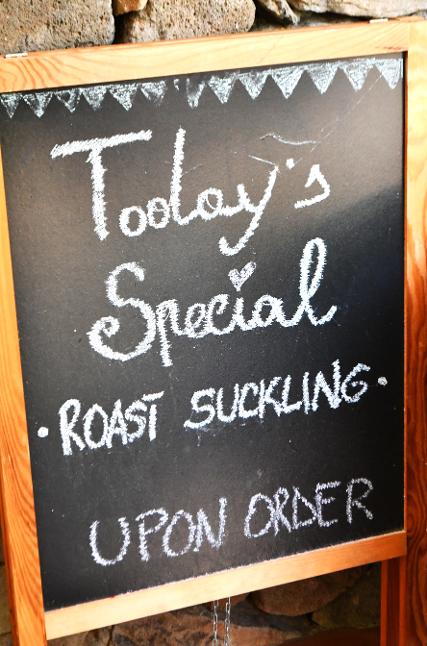 Today's
Special
• ROAST SUCKLING •
UPON ORDER